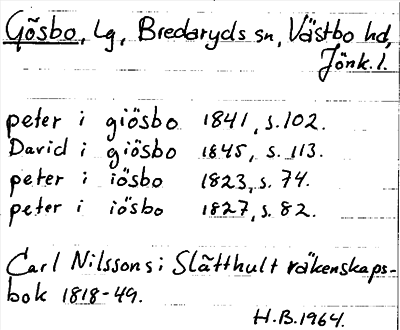 Gösbo, Lg, Bredaryds sn, Västbo hd,
Jönk. l.
peter i giösbo 1841, s. 102.
David i giösbo 1845, s. 113.
peter i iösbo 1823, s. 74.
peter i iösbo 1827, s. 82.
Carl Nilssons i Slätthult räkenskaps-
bok 1818-49.
H.B. 1964.